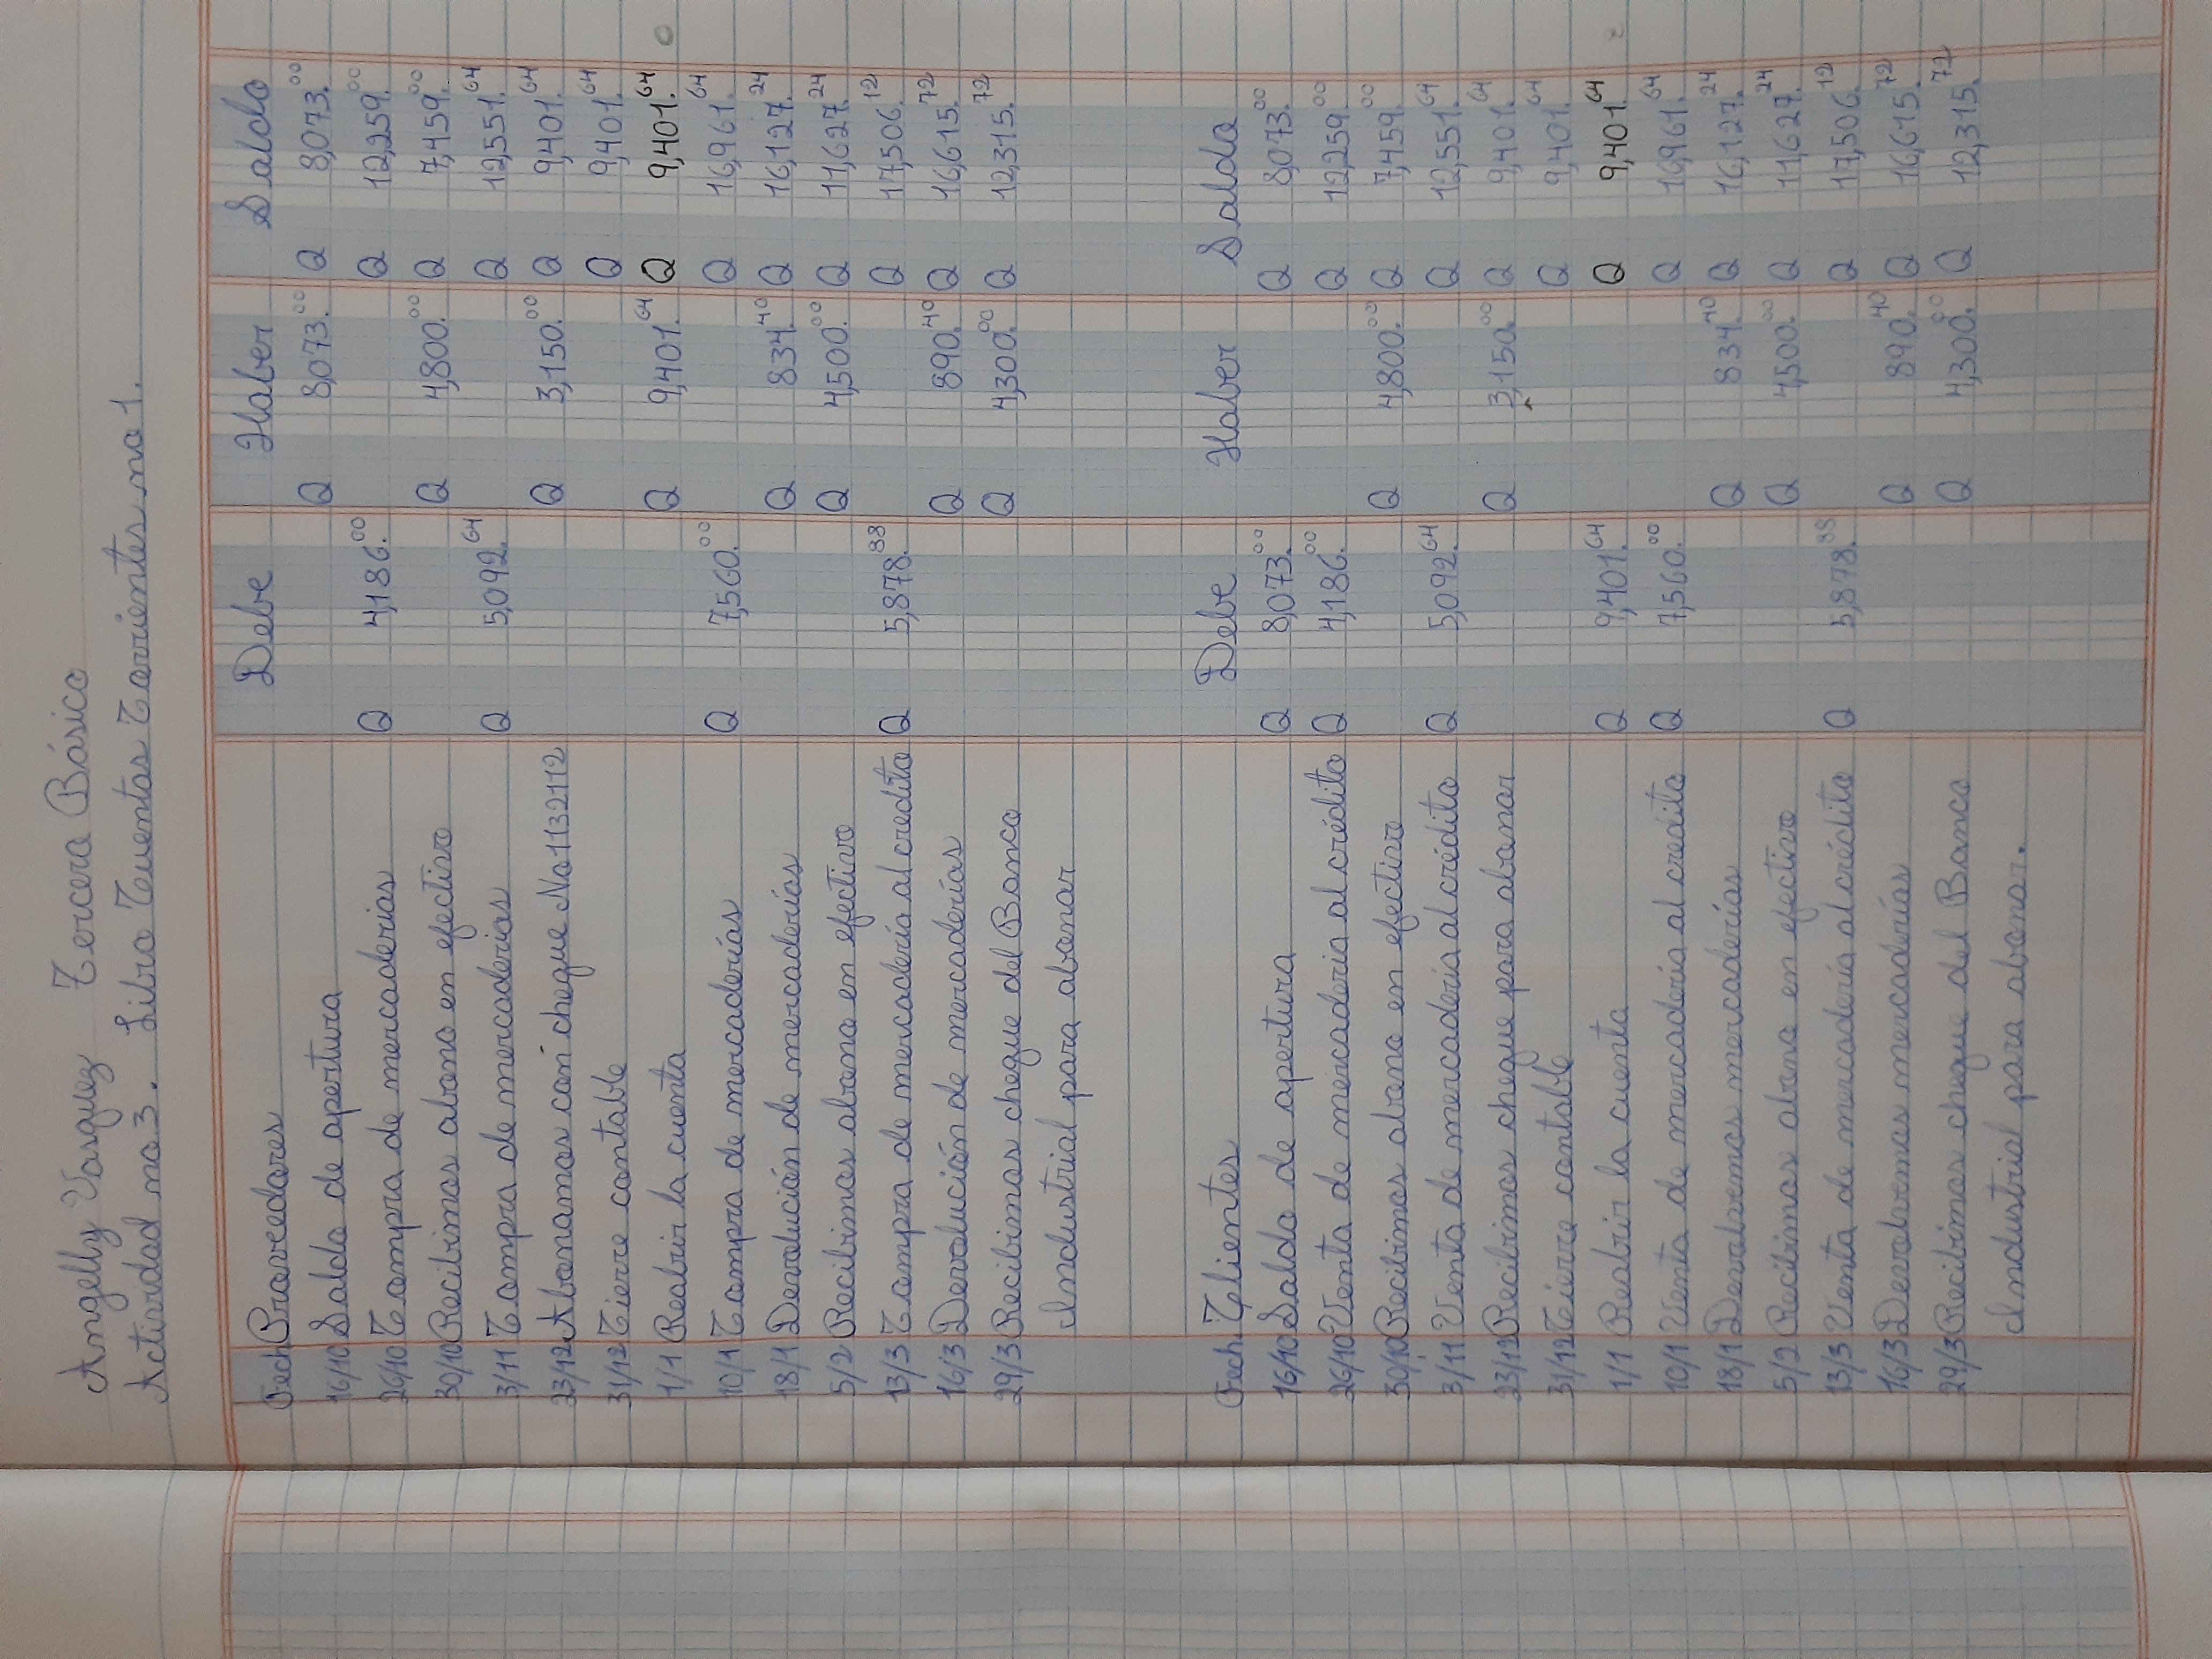 Angelly Vasquez Tercero Básico
Actividad no 3. Libro Cuentas Corrientes no 1.
Fech Proveedores Debe Haber Saldo
16/10 Saldo de apertura Q 8,073.00 Q 8,073.00
26/10 Compra de mercaderias Q 4,186.00 Q 12,259.00
30/10 Recibimos abono en efectivo Q 4,800.00 Q 7,459.00
3/11 Compra de mercaderias Q 5,092.64 Q 12,551.64
23/12 Abonamos con cheque No 1132112 Q 3,150.00 Q 9,401.64
31/12 Cierre contable Q 9,401.64
1/1 Reabrir la cuenta Q 9,401.64 Q 9,401.64
10/1 Compra de mercaderías Q 7,560.00 Q 16,961.64
18/1 Devolución de mercaderías Q 834.40 Q 16,127.24
5/2 Recibimos abono en efectivo Q 4,500.00 Q 11,627.24
13/3 Compra de mercadería al credito Q 5,878.88 Q 17,506.12
16/3 Devolución de mercaderías Q 890.40 Q 16,615.72
29/3 Recibimos cheque del Banco Q 4,300.00 Q 12,315.72
Industrial para abonar
Fech Clientes Debe Haber Saldo
16/10 Saldo de apertura Q 8,073.00 Q 8,073.00
26/10 Venta de mercaderia al crédito Q 4,186.00 Q 12,259.00
30/10 Recibimos abono en efectivo Q 4,800.00 Q 7,459.00
3/11 Venta de mercadería al crédito Q 5,092.64 Q 12,551.64
23/12 Recibimos cheque para abonar Q 3,150.00 Q 9,401.64
31/12 Cierre contable Q 9,401.64
1/1 Reabrir la cuenta Q 9,401.64 Q 9,401.64
10/1 Venta de mercadería al credito Q 7,560.00 Q 16,961.64
18/1 Devolvemos mercaderías Q 834.40 Q 16,127.24
5/2 Recibimos abono en efectivo Q 4,500.00 Q 11,627.24
13/3 Venta de mercadería al crédito Q 5,878.88 Q 17,506.12
16/3 Devolvemos mercaderías Q 890.40 Q 16,615.72
29/3 Recibimos cheque del Banco Q 4,300.00 Q 12,315.72
Industrial para abonar.